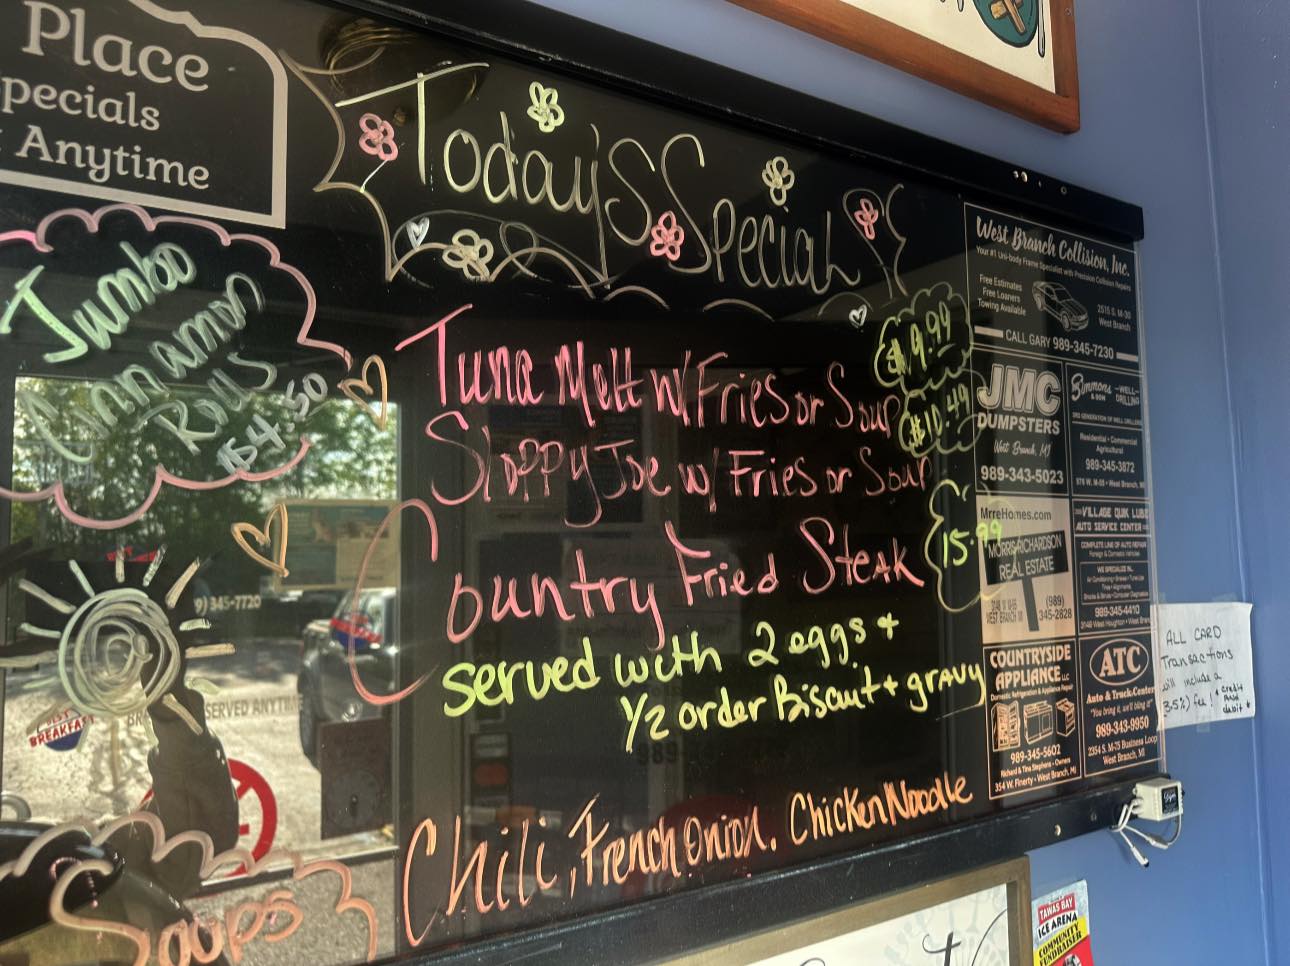 Place
Specials
Anytime
Today's Special
Jumbo
Cinnamon
Rolls
$4.50
Tuna Melt w/ Fries or Soup $9.99
Sloppy Joe w/ Fries or Soup $10.49
Country Fried Steak 15.99
served with 2 eggs +
1/2 order Biscuit + gravy
Soups
Chili, French Onion. Chicken Noodle
9) 345-7720
BREAKFAST
SERVED ANYTIME
989
West Branch Collision, Inc.
Your #1 Uni-body Frame Specialist with Precision Collision Repairs
Free Estimates
Free Loaners
Towing Available
2515 S. M-30
West Branch
CALL GARY 989-345-7230
JMC
DUMPSTERS
West Branch, MI
989-343-5023
Simmons
& SON
WELL
DRILLING
3RD GENERATION OF WELL DRILLERS
Residential • Commercial
Agricultural
989-345-3872
West Branch, MI
MrreHomes.com
MORRIS-RICHARDSON
REAL ESTATE
WEST BRANCH MI
(989)
345-2828
VILLAGE QUIK LUBE
AUTO SERVICE CENTER
COMPLETE LINE OF AUTO REPAIR
Foreign & Domestic Vehicles
WE SPECIALIZE IN:
989-345-4410
COUNTRYSIDE
APPLIANCE LLC
Domestic Refrigeration & Appliance Repair
989-345-5602
Richard & Tina Stephens - Owners
354 W. Finerty • West Branch, MI
ATC
Auto & Truck Center
"You bring it, we'll bling it"
989-343-9950
2354 S. M-75 Business Loop
West Branch, MI
ALL CARD
Transactions
will include a
3.5% fee! * credit
AND
debit *
TAWAS BAY
ICE ARENA
COMMUNITY
FUNDRAISER